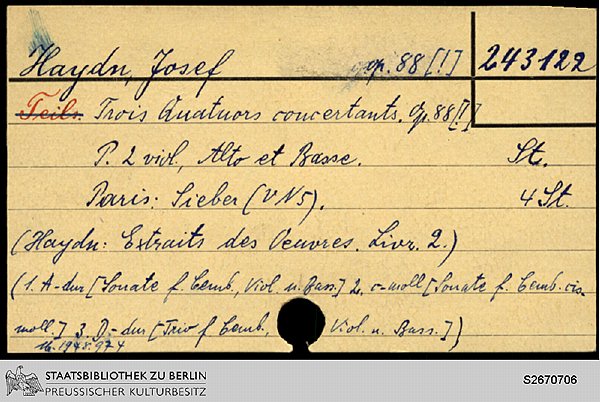 Haydn, Josef op. 88 [!] 243122
Teils. Trois Quatuors concertants. Op. 88 [!]
P. 2 viol, Alto et Basse. St.
Paris: Sieber (VN 5). 4 St.
(Haydn: Extraits des Oeuvres. Livr. 2.)
(1. A-dur [Sonate f. Cemb., Viol. u. Bass.] 2. c-moll [Sonate f. Cemb. cis-
moll.] 3. D-dur [Trio f. Cemb., Viol. u. Bass.])
M. 1948.974
STAATSBIBLIOTHEK ZU BERLIN
PREUSSISCHER KULTURBESITZ
S2670706